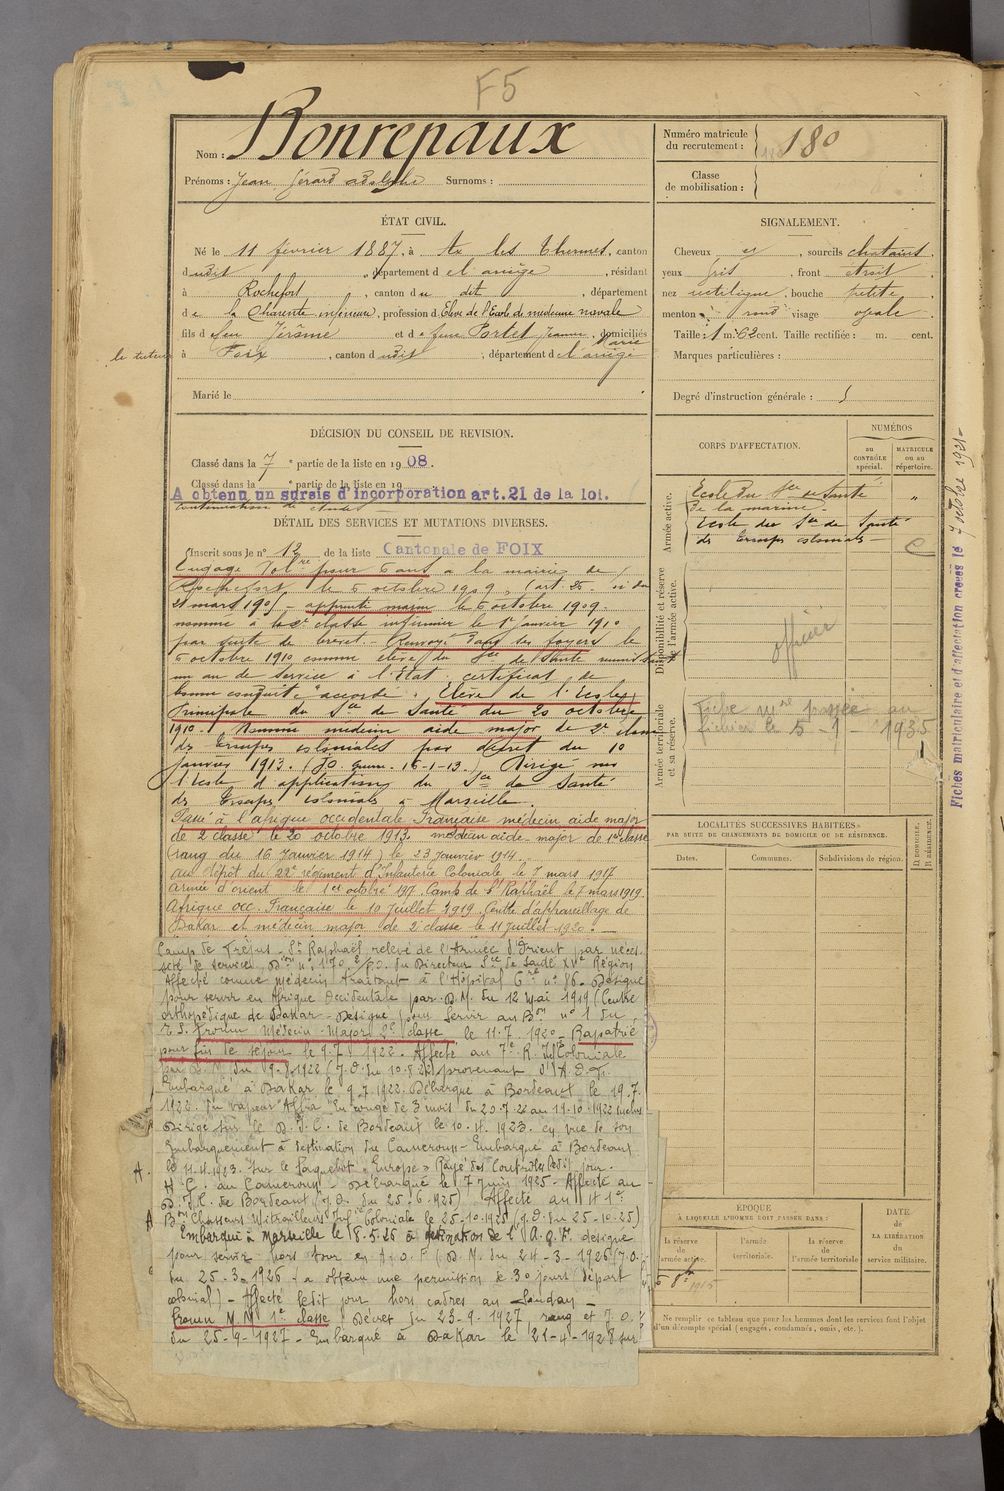 F5
Nom : Bonrepaux
Prénoms : Jean Gérard Adolphe Surnoms :
Numéro matricule du recrutement : 180
Classe de mobilisation :
ÉTAT CIVIL.
Né le 11 février 1887, à Ax les Thermes, canton
dudit, département de l'ariège, résidant
à Rochefort, canton du dit, département
de la Charente inférieure, profession d'Elève de l'Ecole de médecine navale
fils de feu Jérôme et de feue Portet Jeanne Marie domiciliés
le tuteur à Foix, canton dudit, département de l'ariège
Marié le
SIGNALEMENT.
Cheveux et, sourcils chatains.
yeux gris, front étroit
nez rectiligne, bouche petite
menton rond visage ovale
Taille : 1 m. 62 cent. Taille rectifiée : m. cent.
Marques particulières :
Degré d'instruction générale : 5
DÉCISION DU CONSEIL DE REVISION.
Classé dans la 7e partie de la liste en 1908.
Classé dans la e partie de la liste en 19
A obtenu un sursis d'incorporation art. 21 de la loi.
continuation de études
DÉTAIL DES SERVICES ET MUTATIONS DIVERSES.
Inscrit sous le n° 12 de la liste Cantonale de FOIX
Engagé Volre pour 5 ans à la mairie de
Rochefort le 6 octobre 1909, (art 25
21 mars 1905 - apprenti marin le 6 octobre 1909.
nommé à la 2e classe infirmier le 1er janvier 1910
par suite de brevet. - Renvoyé dans ses foyers le
6 octobre 1910 comme élève du Sce de Santé
un an de service à l'Etat. certificat de
bonne conduite "accordé". Elève de l'Ecole
Principale du Sce de Santé du 20 octobre
1910. Nommé médecin aide major de 2e classe
des troupes coloniales par décret du 10
janvier 1913. (JO 16-1-13.) Dirigé sur
l'Ecole d'application du Sce de Santé
des troupes coloniales à Marseille.
Passé à l'afrique occidentale Française médecin aide major
de 2 classe le 20 octobre 1913. médecin aide-major de 1re classe
(rang du 16 Janvier 1914) le 23 janvier 1914.
au dépôt du 22e régiment d'Infanterie Coloniale le 7 mars 1917
armée d'orient le 1er octobre 1917. Camp de St Raphaël le 7 mars 1919.
Afrique occ. Française le 10 juillet 1919. Centre d'appareillage de
Dakar et médecin major de 2e classe le 11 juillet 1920. -
Camp de Fréjus - St Raphaël, relevé de l'Armée d'Orient par néces
sité de services, Don n° 170 du Directeur Sce de Santé XVe Région
Affecté comme médecin traitant à l'Hôpital Cre n° 86. Désigné
pour servir en Afrique Occidentale par D.M. du 12 mai 1919 (Centre
orthopédique de Dakar - Désigné pour servir au Bon n° 1 du
T.S. Promu Médecin-Major 2e classe le 11.7.1920 - Rapatrié
pour fin de séjour le 9.7.1922. Affecté au 7e R. Ie Coloniale
par D.M. du 9.8.1922 (J.O. du 10.8.22) provenant d'A.O.F.
Embarqué à Dakar le 9.7.1922. Débarqué à Bordeaux le 19.7.
1922. du vapeur En congé de 3 mois du 20.7.22 au 19.10.1922 inclus
Dirigé sur le D.I.C. de Bordeaux le 10.4.1923. en vue de son
Embarquement à destination du Cameroun - Embarqué à Bordeaux
le 11.4.1923. sur le Paquebot « Europe » Rayé des Contrôles ledit jour.
A. H.C. au Cameroun - Débarqué le 7 Juin 1925. Affecté au
D.I.C. de Bordeaux (J.O. du 25.6.1925) Affecté au 1er
A Bon Chasseurs Mitrailleurs Infie Coloniale le 25-10-1925 (J.O. du 25-10-25)
Embarqué à Marseille le 18.5.26 à destination de l'A.O.F. désigné
pour servir hors tour en A.O.F. (D.M. du 24-3-1926 (J.O.
du 25-3-1926 - (a obtenu une permission de 30 jours (départ
colonial) - Affecté ledit jour hors cadres au Soudan -
Promu M.M. 1e classe Décret du 23-9.1927 rang et J.O.
du 25-9-1927 - Embarqué à Dakar le 21-4-1928 sur
CORPS D'AFFECTATION.
NUMÉROS
au CONTRÔLE spécial.
MATRICULE ou au répertoire.
Armée active.
Ecole du Sce de Santé "
de la marine.
Ecole du Sce de Santé
des troupes coloniales -
Disponibilité et réserve de l'armée active.
officier
Armée territoriale et sa réserve.
Fiche mre passée au
fichier le 5-1-1935
LOCALITÉS SUCCESSIVES HABITÉES
PAR SUITE DE CHANGEMENTS DE DOMICILE OU DE RÉSIDENCE.
Dates.
Communes.
Subdivisions de région.
D. DOMICILE. R. RÉSIDENCE.
ÉPOQUE
À LAQUELLE L'HOMME DOIT PASSER DANS :
la réserve de l'armée active.
l'armée territoriale.
la réserve de l'armée territoriale
DATE de LA LIBÉRATION du service militaire.
Ne remplir ce tableau que pour les hommes dont les services font l'objet
d'un décompte spécial (engagés, condamnés, omis, etc.).
Fiches matriculaire et d'affectation creées le 7 octobre 1921 -